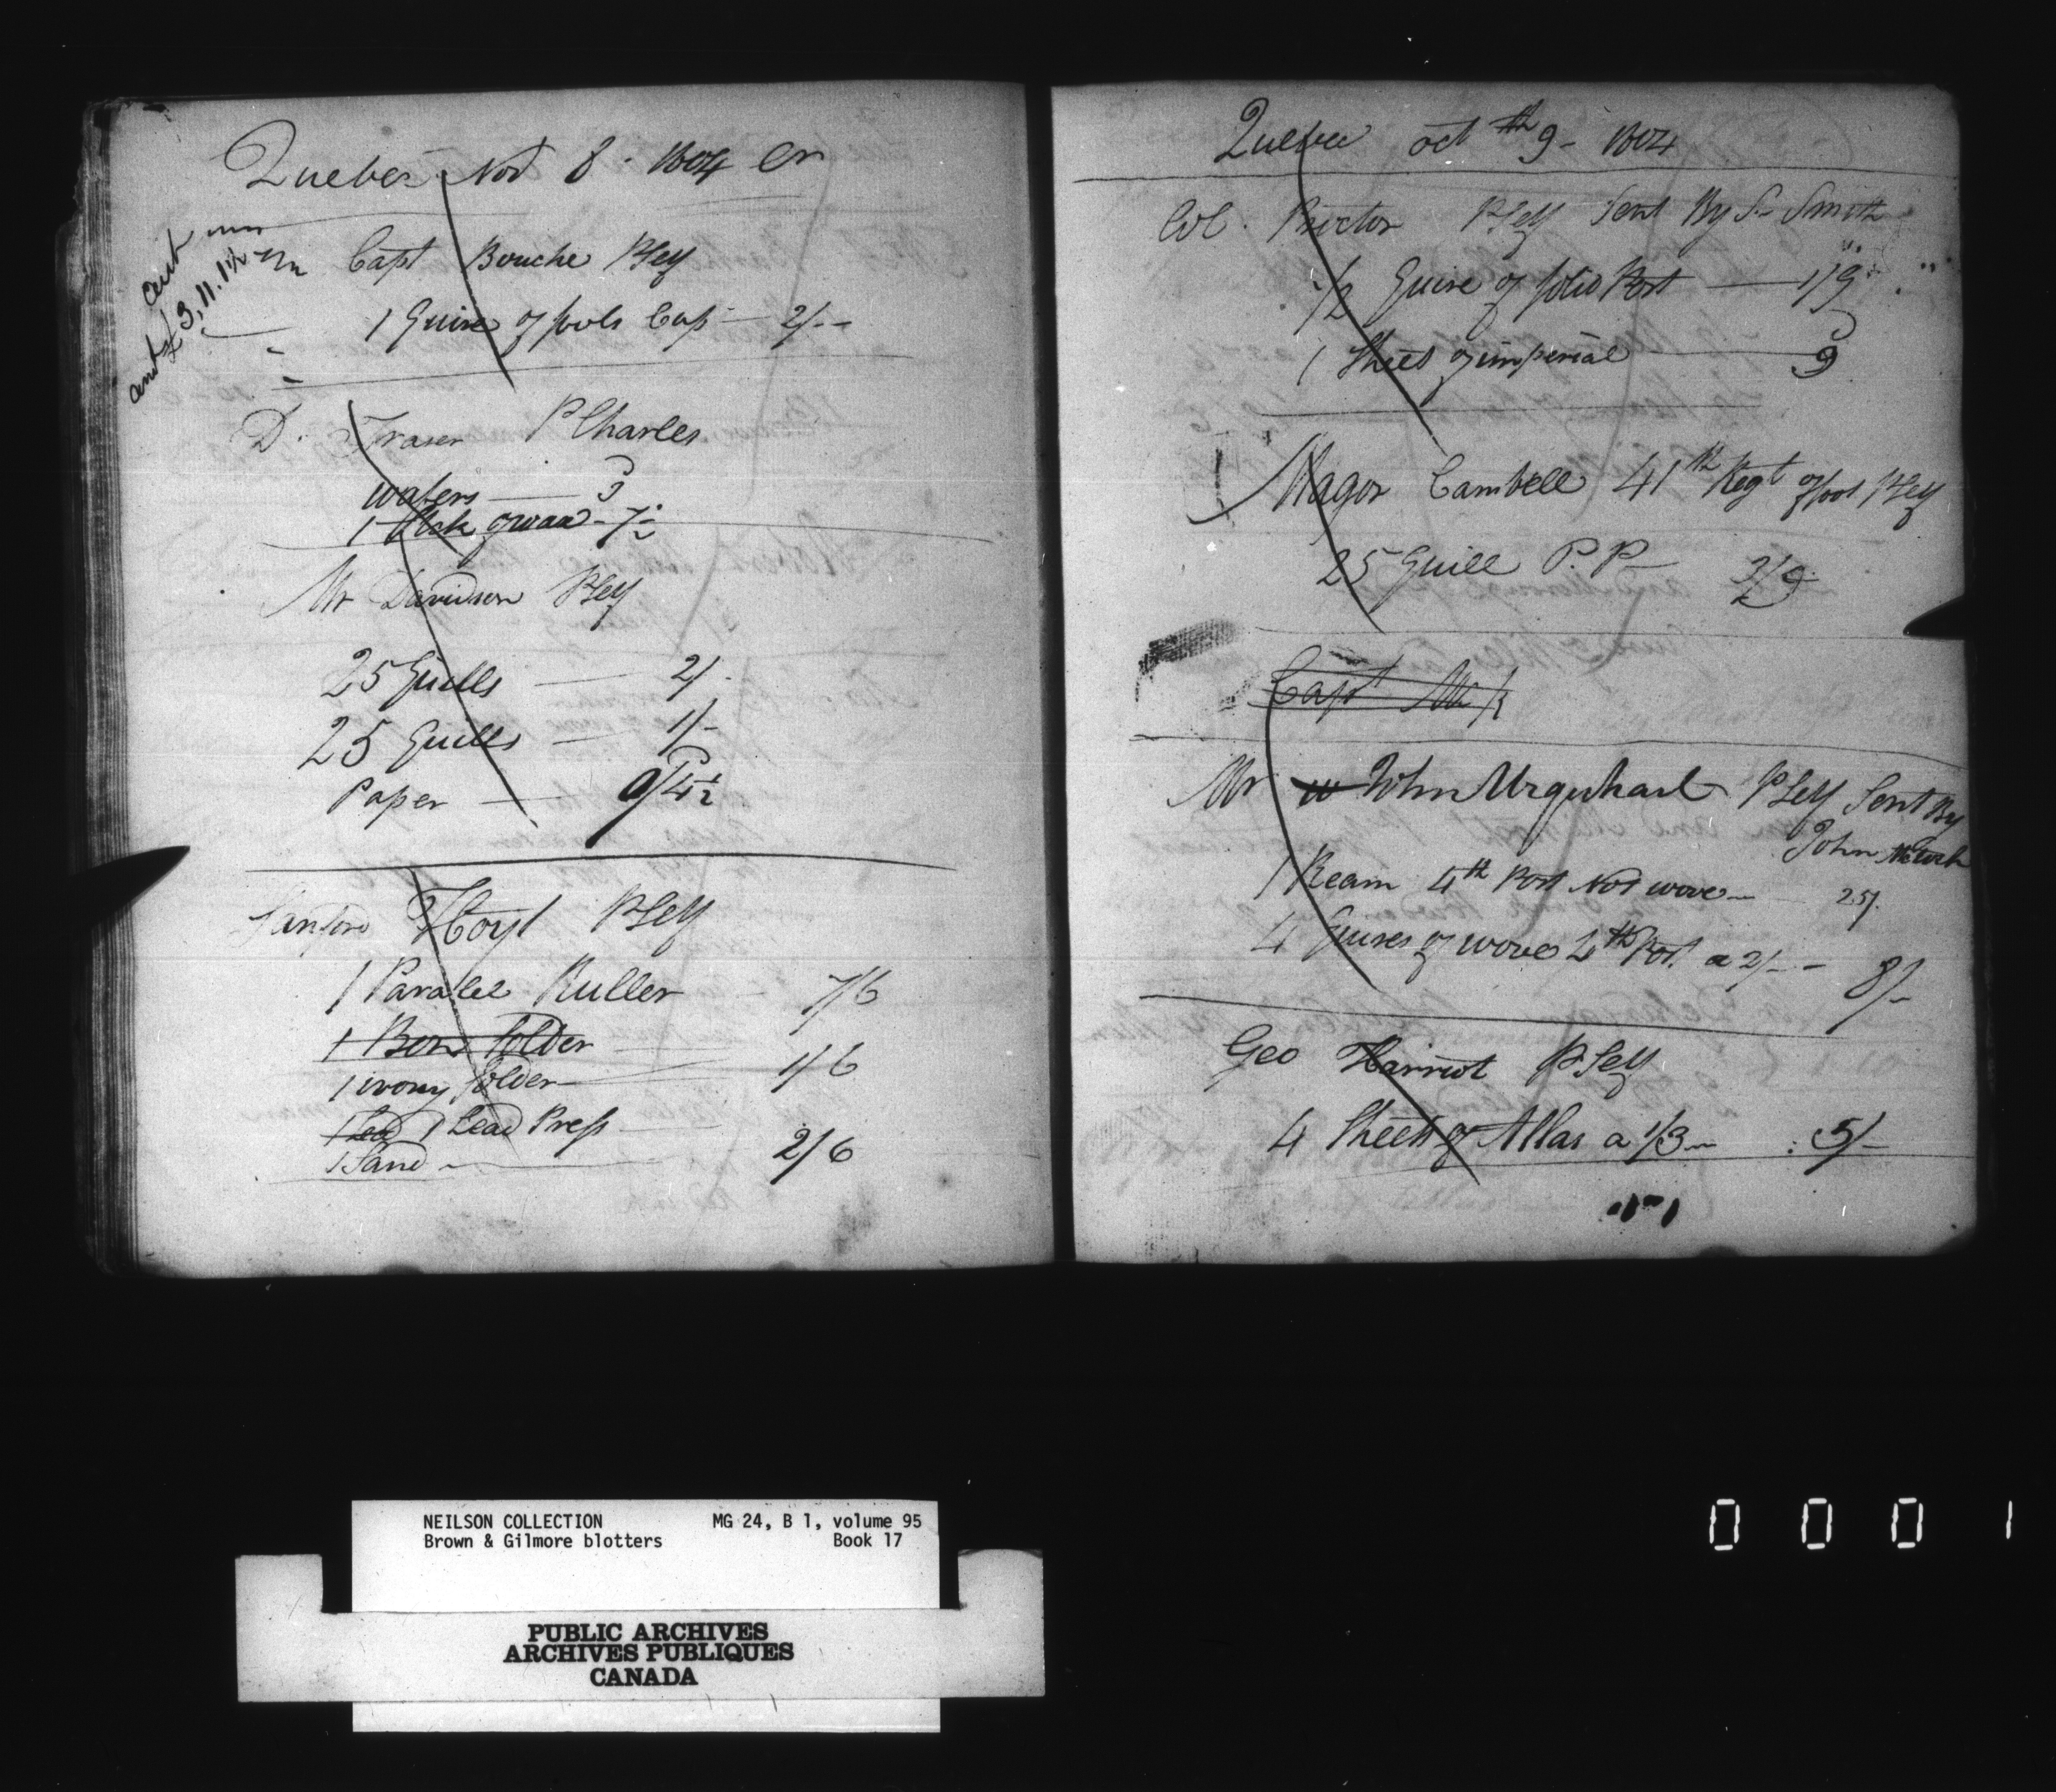 Quebec Nov 8 - 1804
and £ 3, 11. 1½
Capt Bouche PSelf
1 Quire of fools Cap — 2/--
D. Fraser P Charles
wafers — 3
1 stick of wax - 7½
Mr Davidson PSelf
25 Quills — 2/.
25 Quills — 1/-
Paper — 9/4½
Sanford Hoyt PSelf
1 Paralel Ruller — 7/6
1 Bon folder
1 ivory folder — 1/6
1 Lead 1 Lead Press
1 Sand — 2/6
Quebec oct th 9 - 1804
Col. Proctor PSelf Sent By S- Smith
1/2 Quire of folio Post — 1/9
1 Sheet of imperial — 9
Magor Cambell 41th Regt of foot PSelf
25 Quill P. P — 3/9
Capt Mc
Mr John Urquhart PSelf Sent By
John
1 Ream 4th Post Not wove — 25/.
4 Quires of wove 4th Post a 2/-- 8/-
Geo Harriot PSelf
4 Sheets of Atlas a 1/3 — : 5/-
NEILSON COLLECTION MG 24, B 1, volume 95
Brown & Gilmore blotters Book 17
PUBLIC ARCHIVES
ARCHIVES PUBLIQUES
CANADA
0 0 0 1